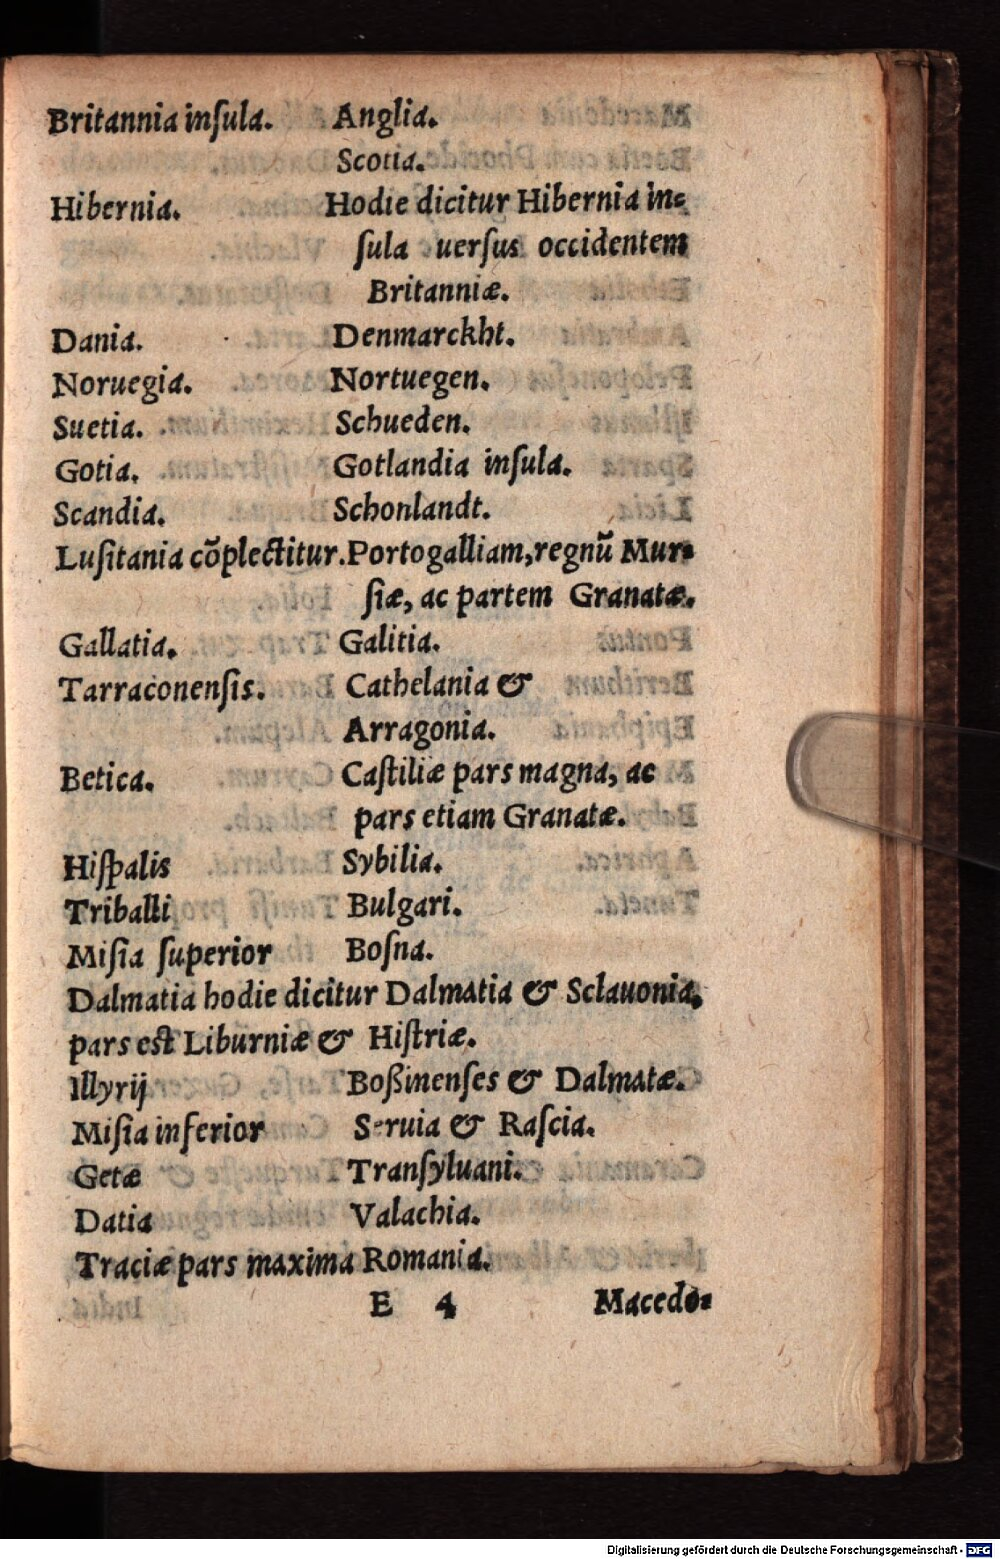 Britannia inſula. Anglia.
Scotia.
Hibernia. Hodie dicitur Hibernia in⸗
ſula uerſus occidentem
Britanniæ.
Dania. Denmarckht.
Noruegia. Nortuegen.
Suetia. Schueden.
Gotia. Gotlandia inſula.
Scandia. Schonlandt.
Luſitania cõplectitur. Portogalliam, regnũ Mur⸗
ſiæ, ac partem Granatæ.
Gallatia. Galitia.
Tarraconenſis. Cathelania &
Arragonia.
Betica. Caſtiliæ pars magna, ac
pars etiam Granatæ.
Hiſpalis Sybilia.
Triballi Bulgari.
Miſia ſuperior Boſna.
Dalmatia hodie dicitur Dalmatia & Sclauonia,
pars est Liburniæ & Hiſtriæ.
Illyrij Boßinenſes & Dalmatæ.
Miſia inferior Seruia & Raſcia.
Getæ Tranſyluani.
Datia Valachia.
Traciæ pars maxima Romania.
E 4 Macedo⸗
Digitalisierung gefördert durch die Deutsche Forschungsgemeinschaft - DFG